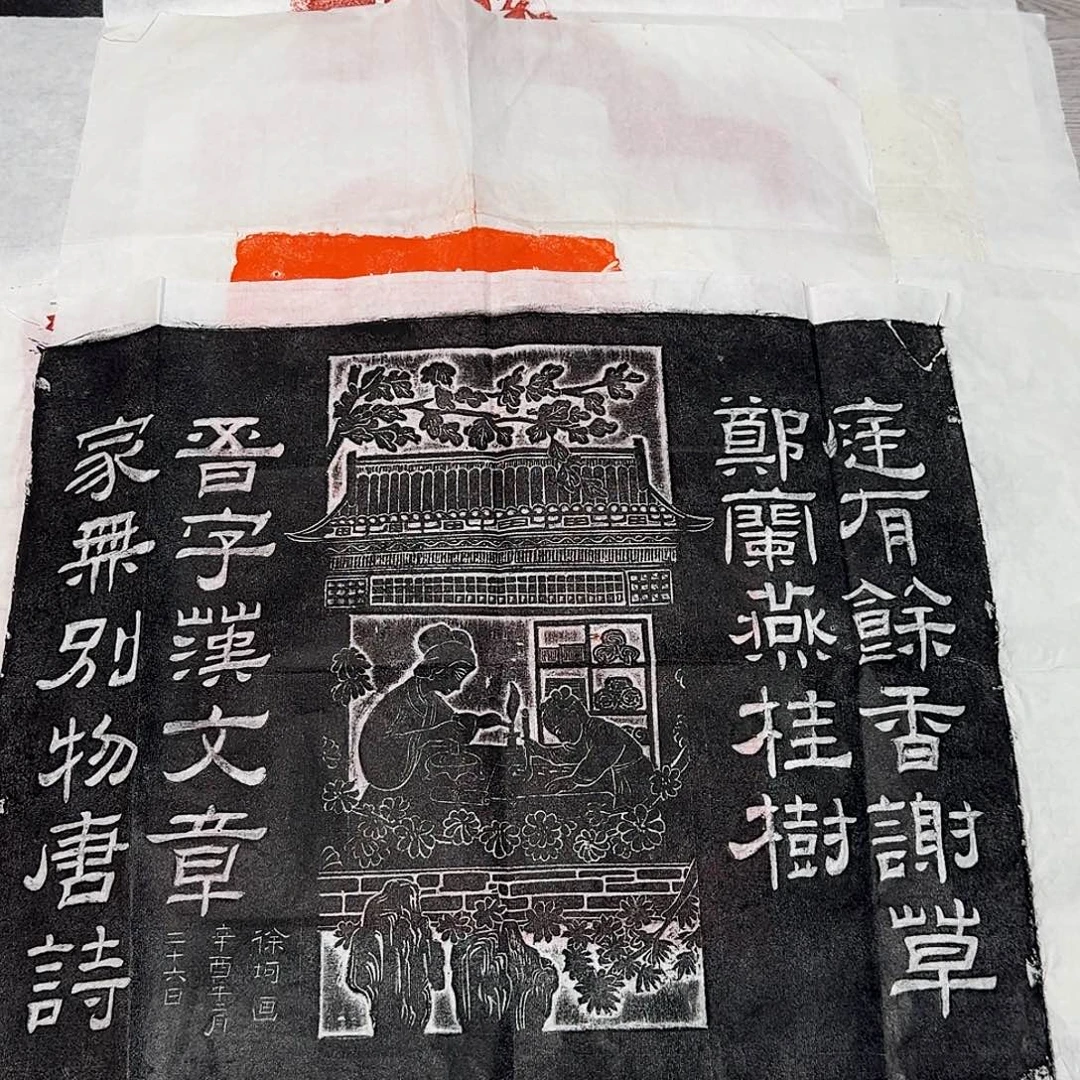 庭有餘香謝草
鄭蘭燕桂樹
家無別物唐詩
晉字漢文章
徐坷画
辛酉十二月
二十六日